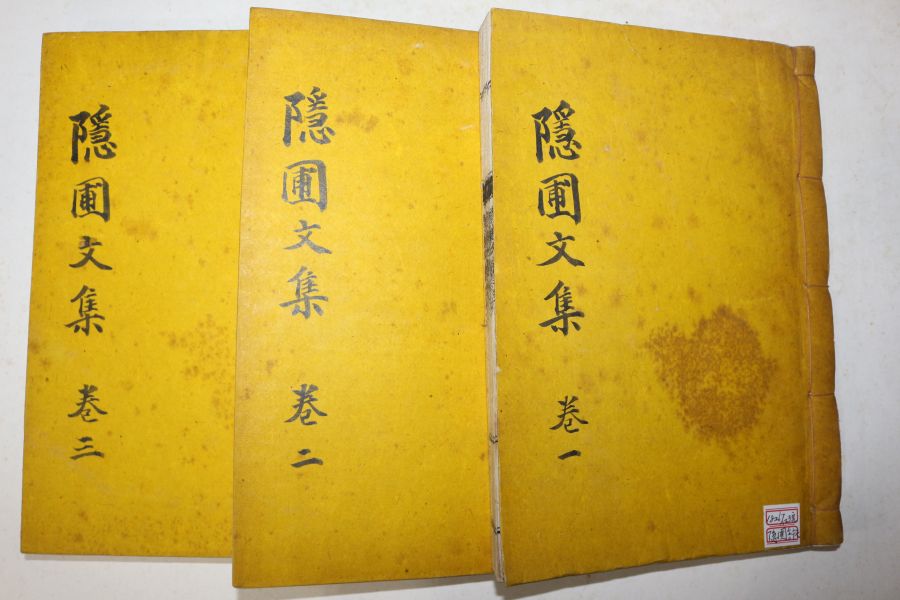 隱圃文集 卷一
隱圃文集 卷二
隱圃文集 卷三